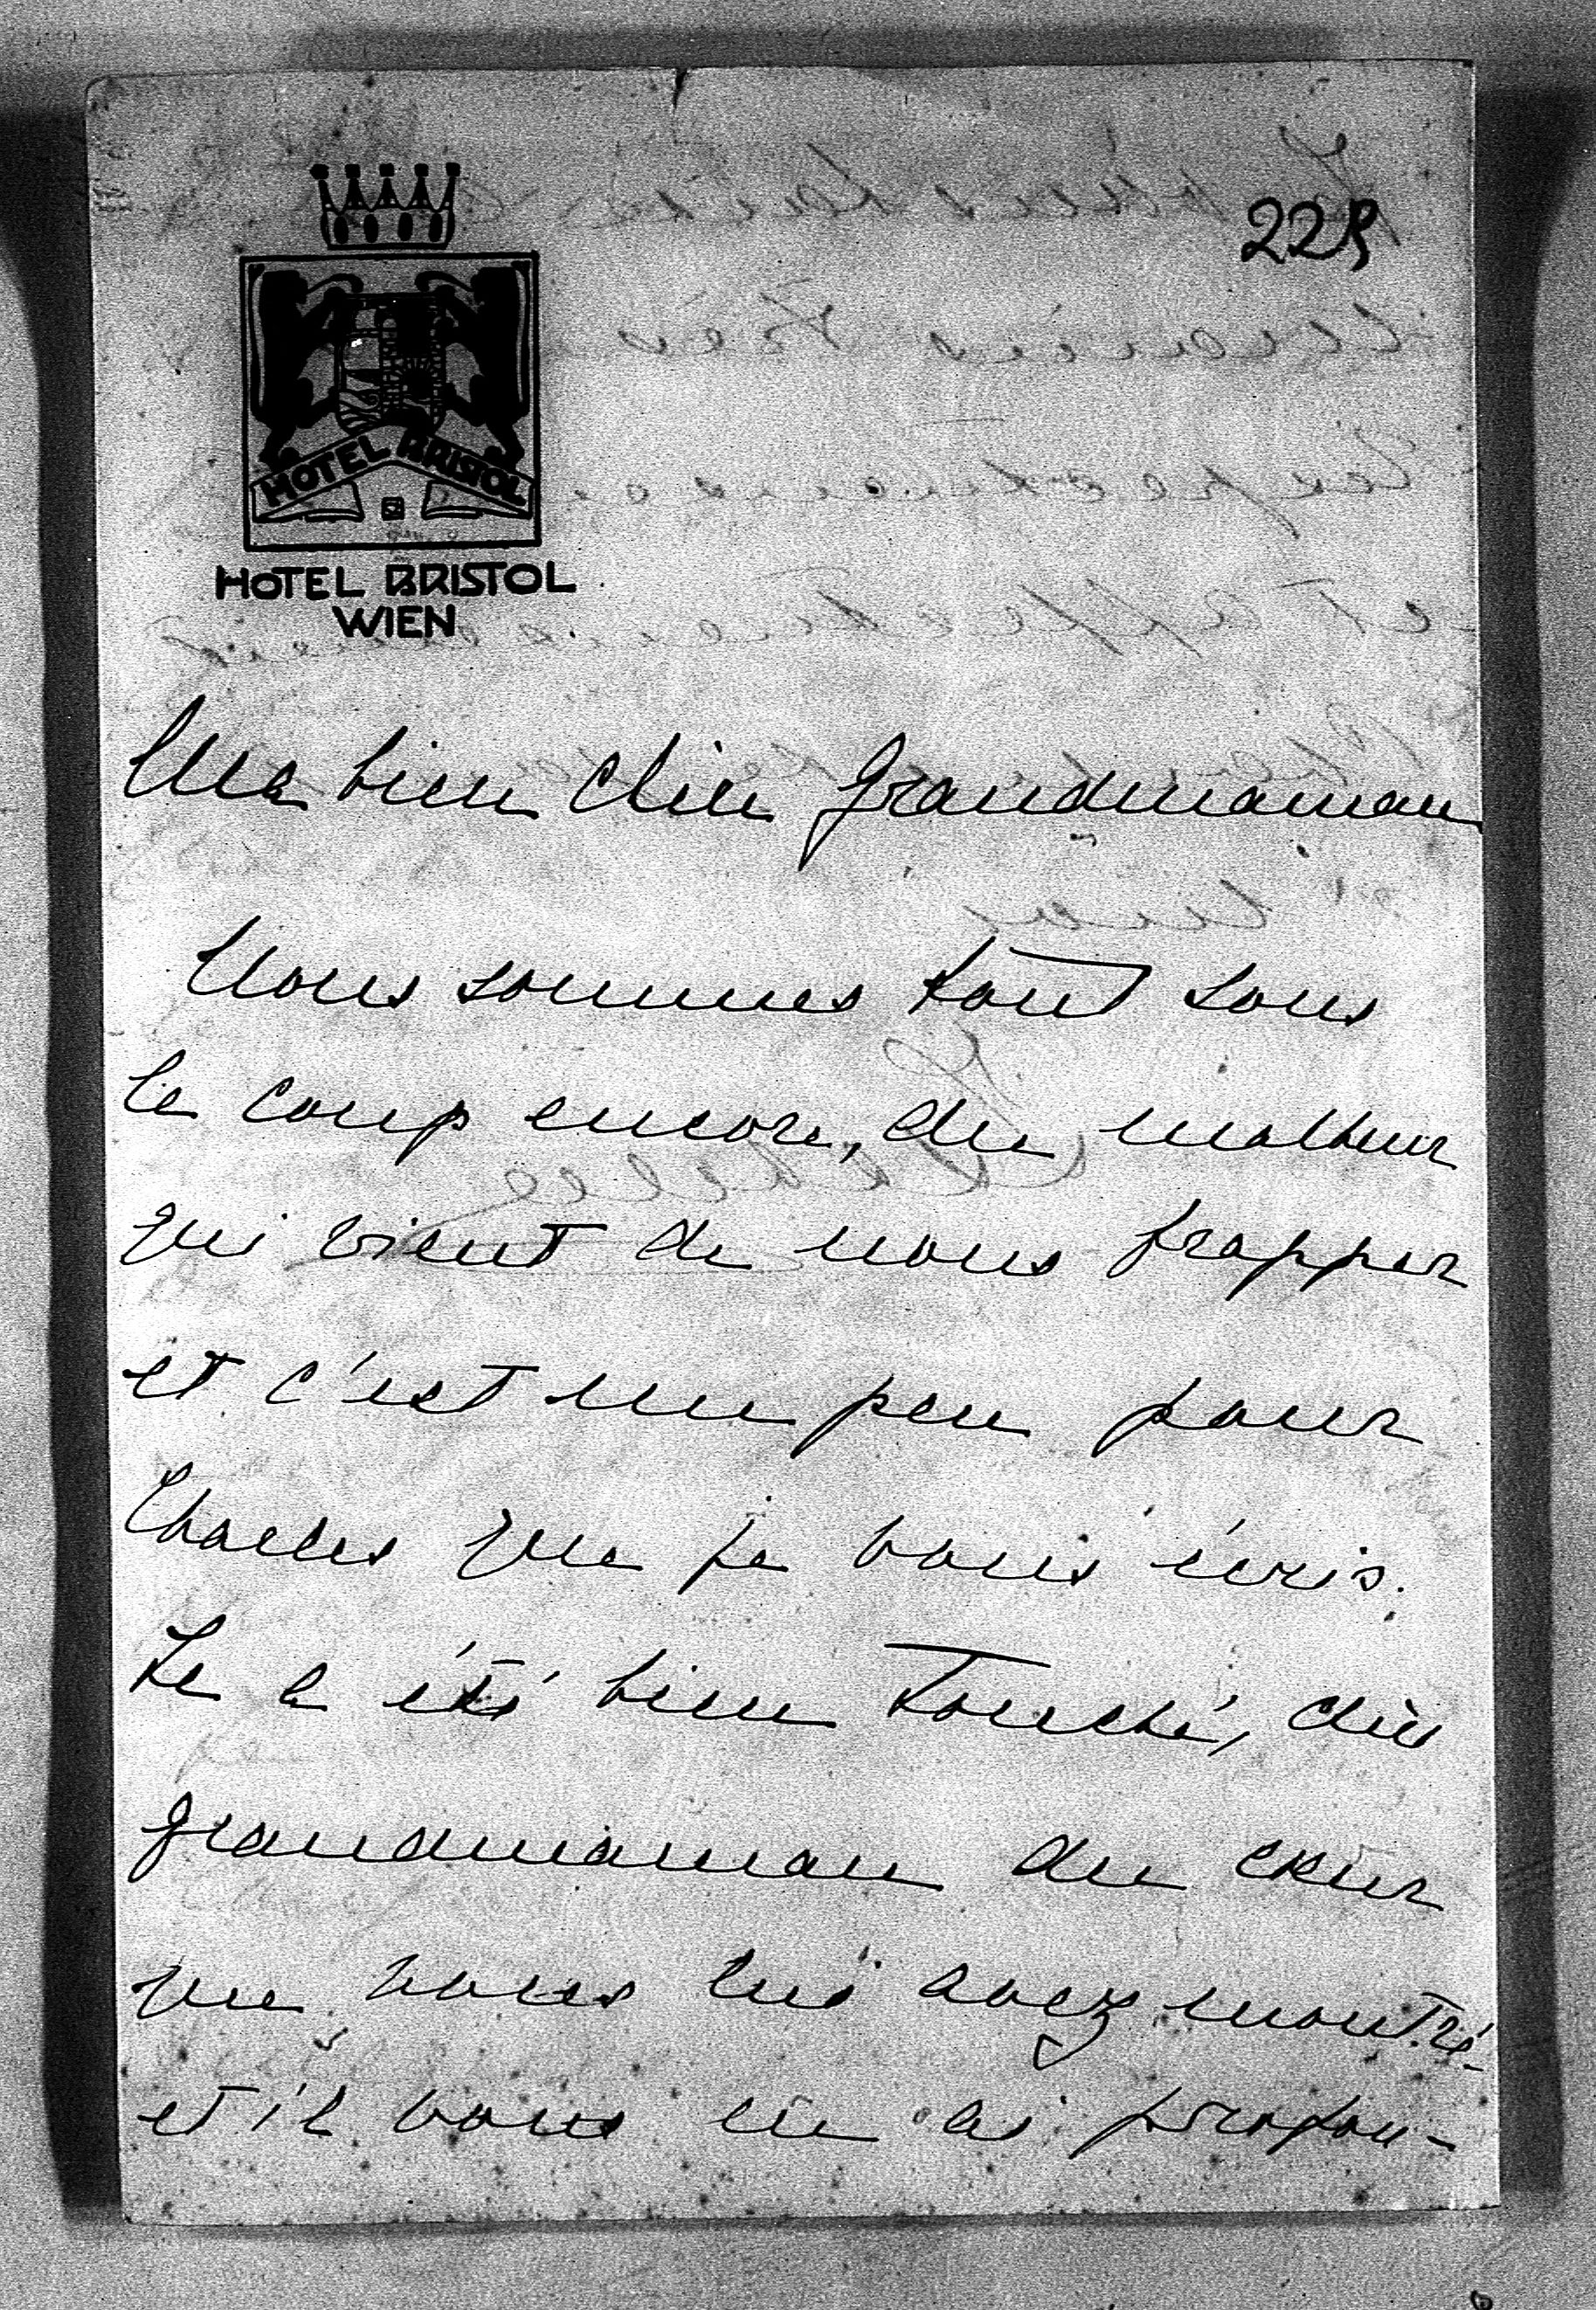 225
HOTEL BRISTOL
HOTEL BRISTOL
WIEN
Ma bien chère grandmaman
Nous sommes tout sous
le coup encore, du malheur
qui vient de nous frapper
et c'est un peu pour
Charles que je vous écris.
Il a été bien touché, chère
grandmaman du cœur
que vous lui avez montré
et il vous en ai profon-